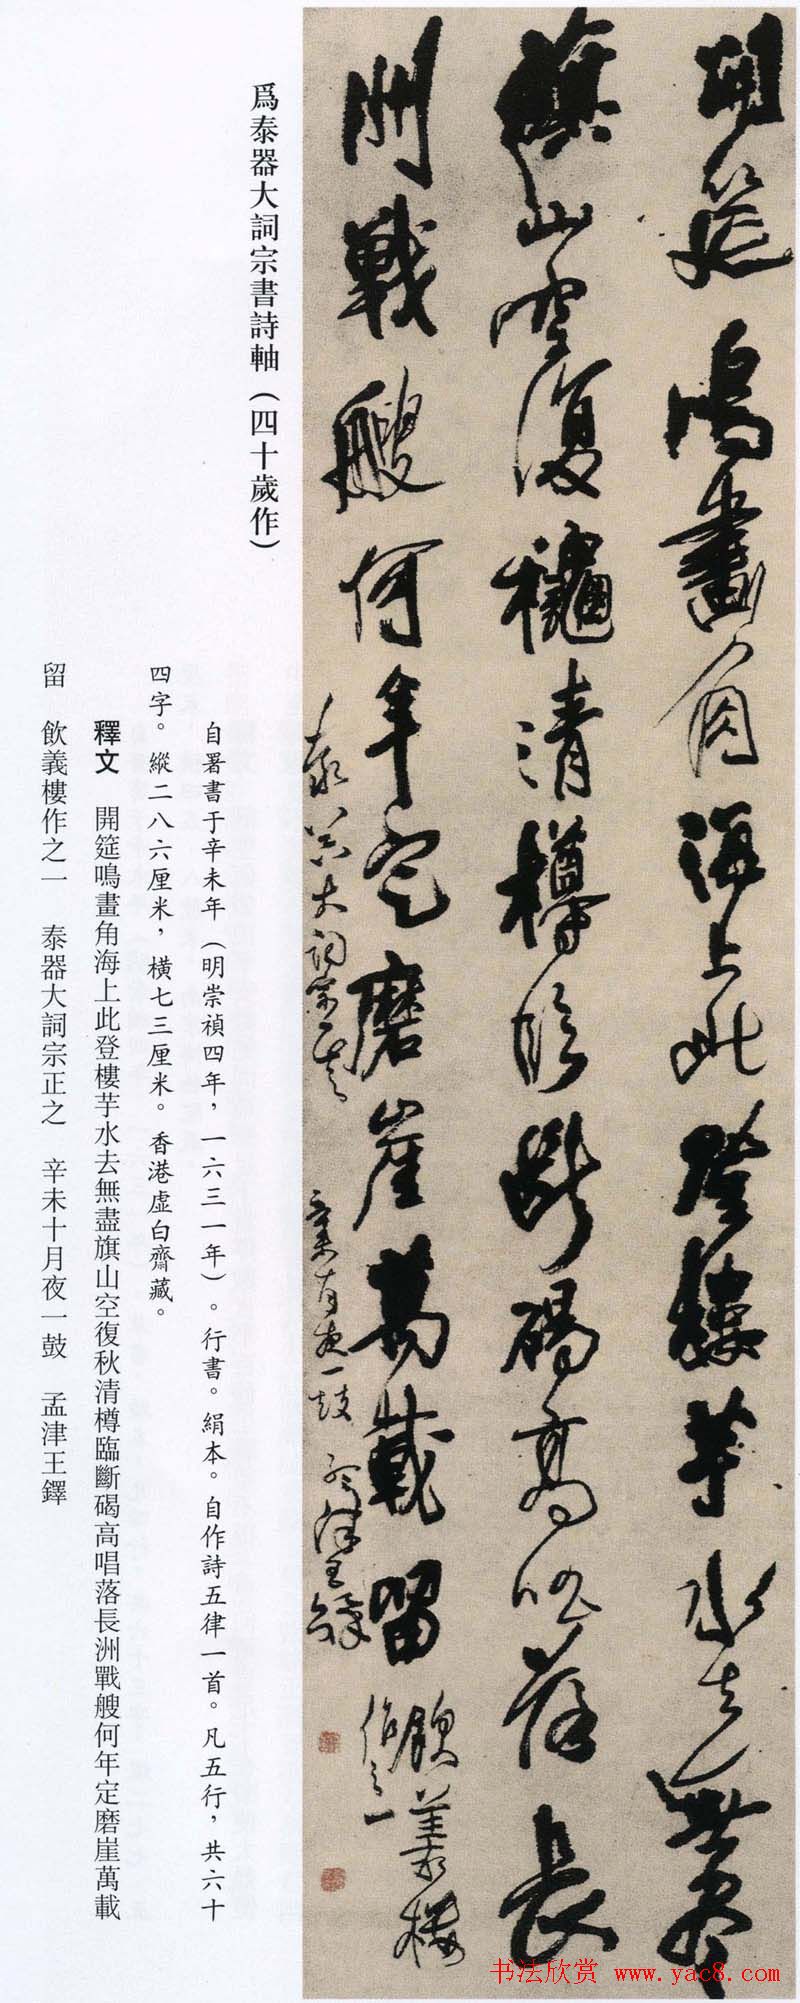 開筵鳴畫角海上此登樓芋水去無盡
旗山空復龝清樽臨斷碣高唱落長
洲戰艘何年定磨崖萬載留 飲義樓
作之一
泰器大詞宗正之 辛未十月夜一鼓 孟津王鐸
爲泰器大詞宗書詩軸（四十歲作）
自署書于辛未年（明崇禎四年，一六三一年）。行書。絹本。自作詩五律一首。凡五行，共六十
四字。縱二八六厘米，橫七三厘米。香港虛白齋藏。
釋文 開筵鳴畫角海上此登樓芋水去無盡旗山空復秋清樽臨斷碣高唱落長洲戰艘何年定磨崖萬載
留 飲義樓作之一 泰器大詞宗正之 辛未十月夜一鼓 孟津王鐸
书法欣赏 www.yac8.com